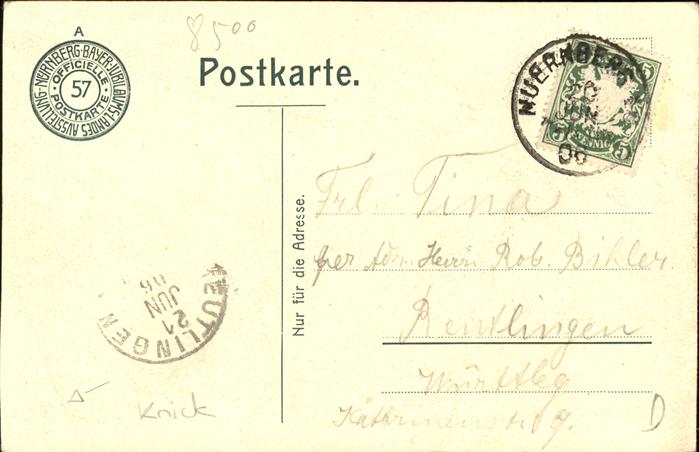 8500
A
NÜRNBERG·BAYER·JUBILÄUMS-LANDES-AUSSTELLUNG·
OFFICIELLE
57
POSTKARTE
Postkarte.
NUERNBERG
20
JUN
06
5
5
PFENNIG
Nur für die Adresse.
Frl. Tina
per Adr. Herrn Rob. Bihler.
Reutlingen
Württbg
REUTLINGEN
21
JUN
06
Knick
D